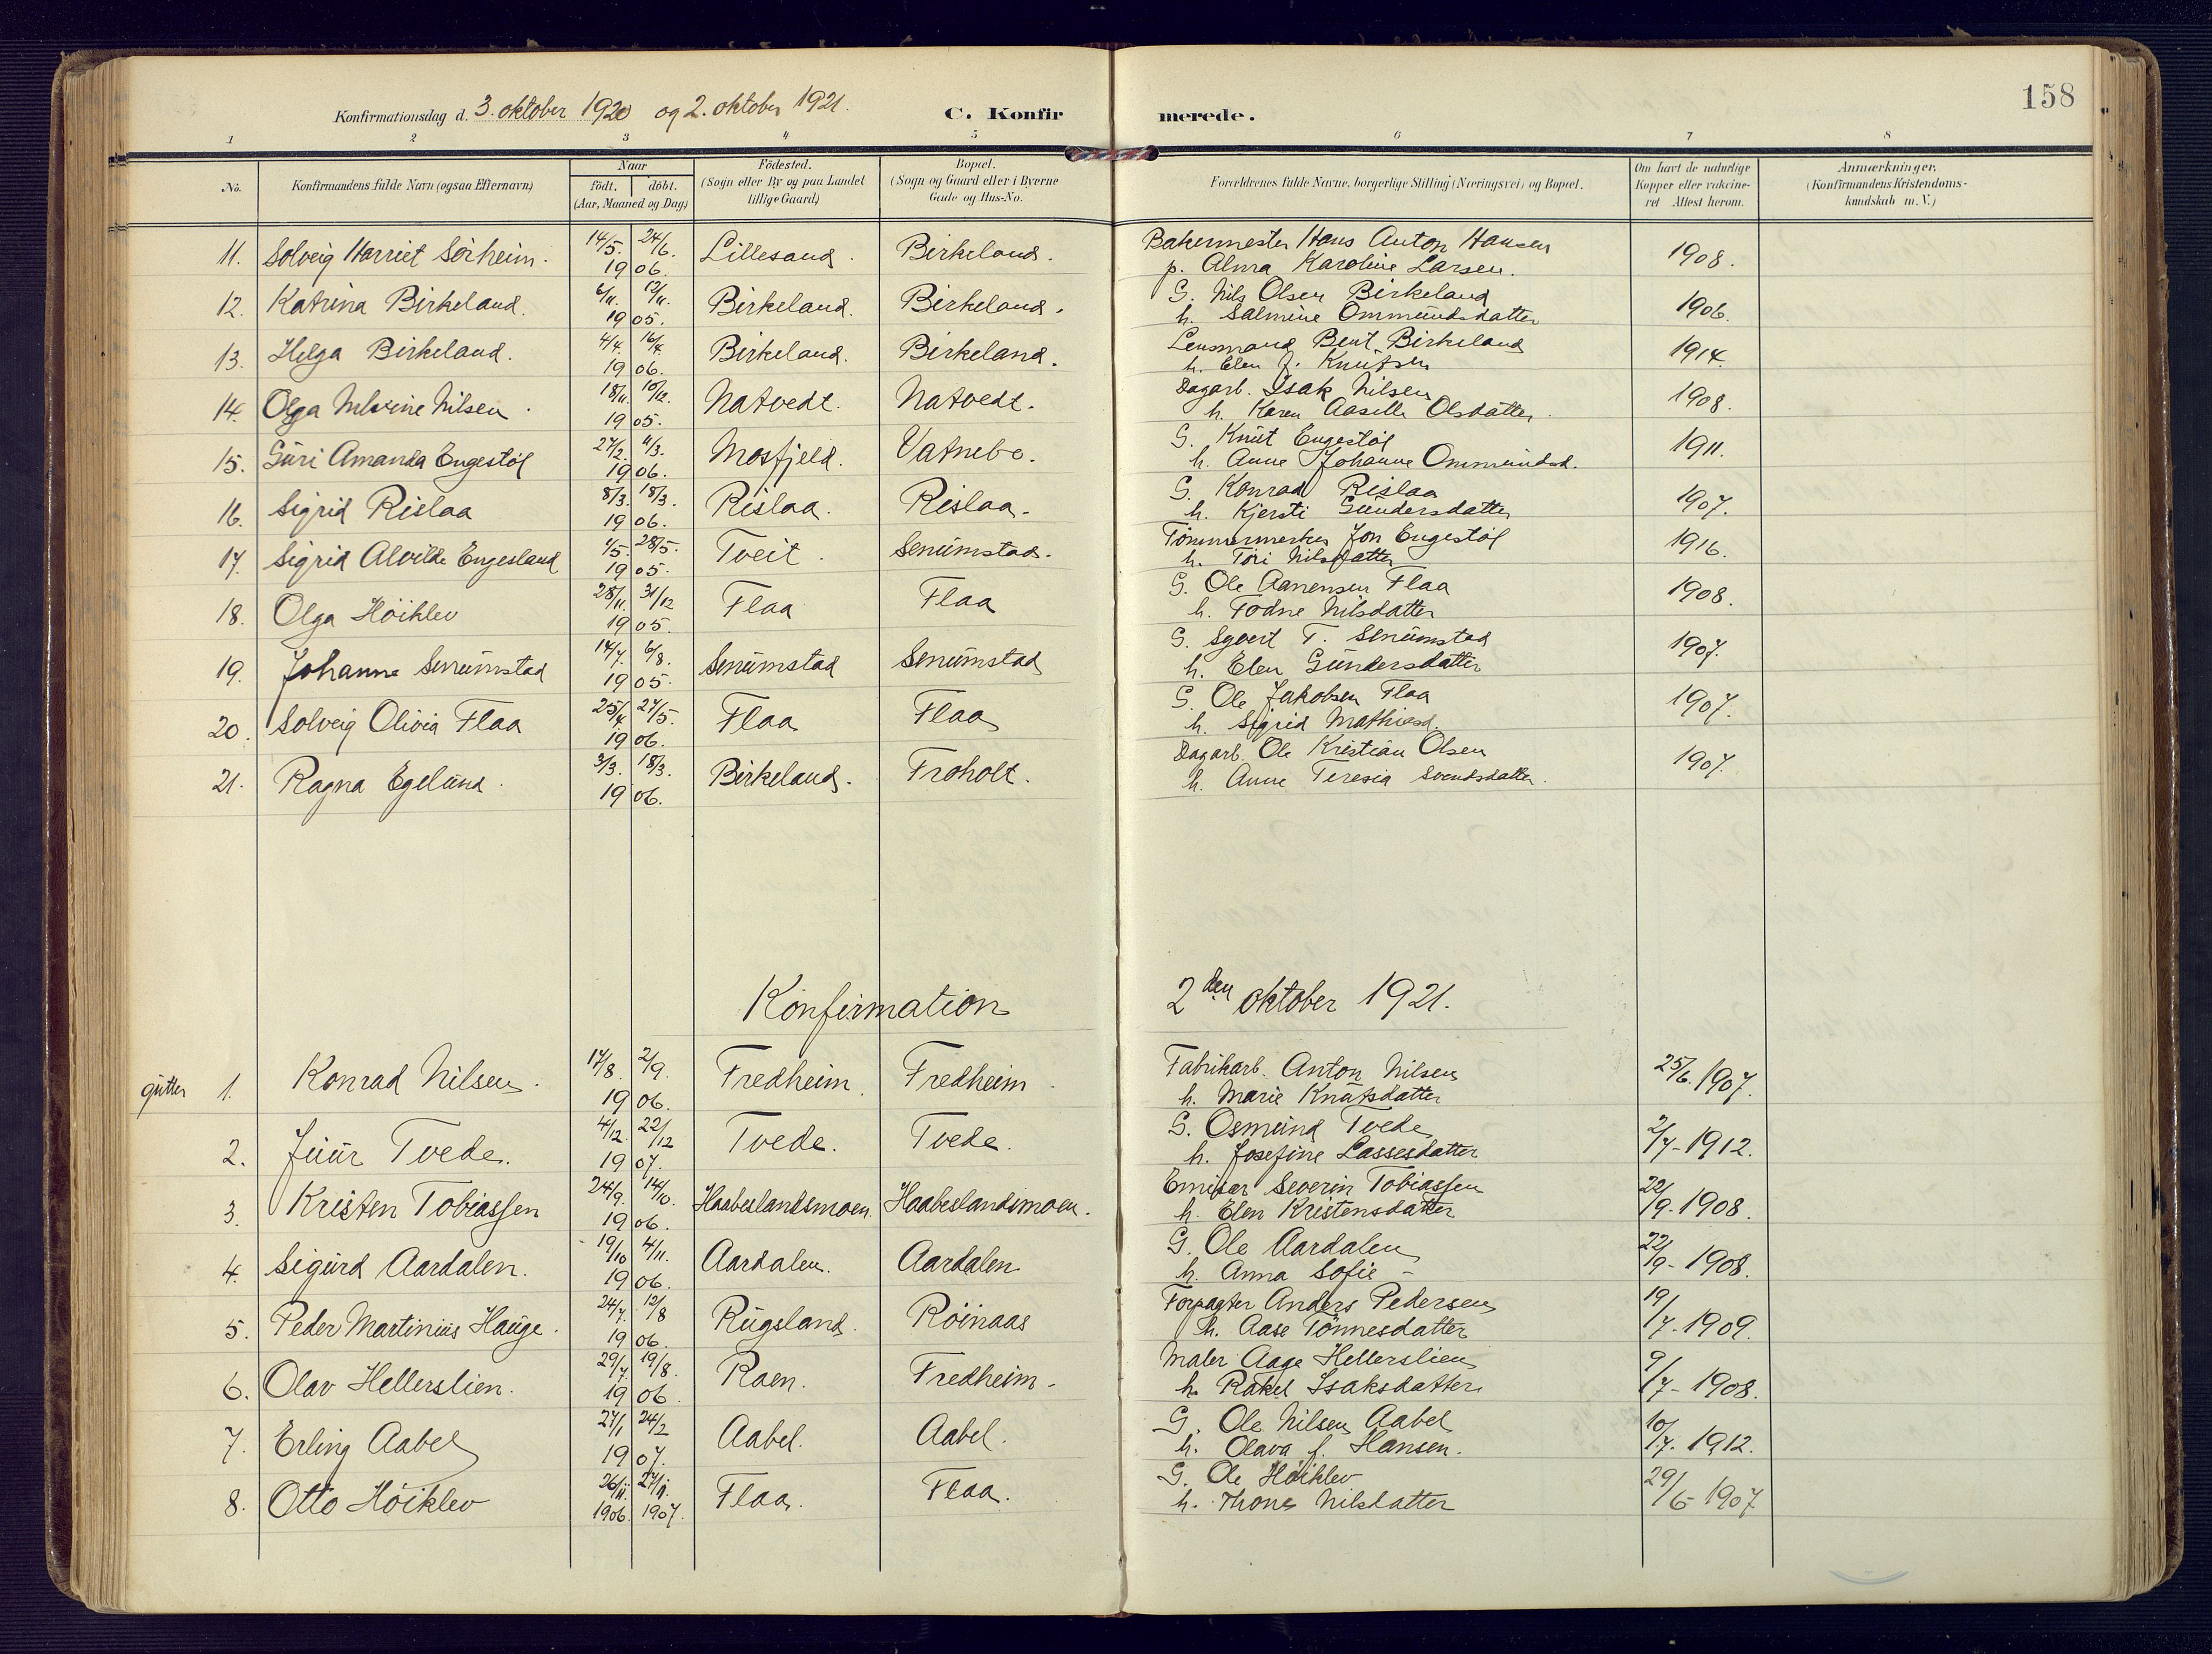 158
Konfirmationsdag d. 3. oktober 1920 og 2. oktober 1921.
C. Konfirmerede.
1 2 3 4 5 6 7 8
No. Konfirmandens fulde Navn (ogsaa Efternavn)
Naar født. døbt. (Aar, Maaned og Dag)
Födested. (Sogn eller By og paa Landet tillige Gaard)
Bopæl. (Sogn og Gaard eller i Byerne Gade og Hus-No.
Forældrenes fulde Navne, borgerlige Stilling (Næringsvei) og Bopæl.
Om havt de naturlige Kopper eller vakcineret Attest herom.
Anmærkninger. (Konfirmandens Kristendomskundskab m. V.)
11. Solveig Harriet Sörheim. 14/5. 24/6. 1906. Lillesand. Birkeland. Bakermester Hans Anton Hansen 1908.
p. Alma Karoline Larsen.
12. Katrina Birkeland. 6/11. 12/11. 1905. Birkeland. Birkeland. G. Nils Olsen Birkeland 1906.
h. Salmine Ommundsdatter
13. Helga Birkeland. 4/4. 16/4. 1906. Birkeland. Birkeland. Lensmand Bent Birkeland 1914.
h. Elen f. Knutsen
14. Olga Nilsine Nilsen. 18/11. 10/12. 1905. Natvedt. Natvedt. Dagarb. Isak Nilsen 1908.
h. Karen Aasille Olsdatter.
15. Guri Amanda Engestöl 27/2. 11/3. 1906. Mosfjeld. Vatnebo. G. Knut Engestöl 1911.
h. Anne Johanne Ommundsd.
16. Sigrid Rislaa 8/3. 18/3. 1906. Rislaa. Rislaa. G. Konrad Rislaa 1907.
h. Kjersti Gundersdatter
17. Sigrid Alvilde Engesland 1/5. 28/5. 1905. Tveit. Senumstad. Tömmermerker Jon Engestöl 1916.
h. Töri Nilsdatter
18. Olga Höiklev 28/11. 31/12 1905. Flaa Flaa G. Ole Aanensen Flaa 1908.
h. Todne Nilsdatter
19. Johanne Senumstad 14/7. 6/8. 1905. Senumstad Senumstad G. Syvert T. Senumstad 1907.
h. Elen Gundersdatter
20. Solveig Olivia Flaa 25/4 27/5. 1906. Flaa Flaa G. Ole Jakobsen Flaa 1907.
h. Sigrid Mathiesd.
21. Ragna Egelund. 3/3. 18/3. 1906. Birkeland. Froholt. Dagarb. Ole Kristian Olsen 1907.
h. Anne Teresia Svendsdatter.
Konfirmation 2den oktober 1921.
gutter 1. Konrad Nilsen. 17/8. 2/9. 1906. Fredheim. Fredheim. Fabrikarb. Anton Nilsen 25/6. 1907.
h. Marie Knutsdatter
2. Juur Tvede. 4/12. 22/12 1907. Tvede. Tvede. G. Osmund Tvede 2/7-1912.
h. Josefine Lassesdatter
3. Kristen Tobiassen 24/9. 14/10. 1906. Haabeslandsmoen. Haabeslandsmoen. Emisær Severin Tobiassen 22/9-1908.
h. Elen Kristensdatter
4. Sigurd Aardalen. 19/10 4/11. 1906. Aardalen. Aardalen G. Ole Aardalen 22/9-1908.
h. Anna Sofie –
5. Peder Martinius Hauge. 24/7. 12/8 1906. Rugsland. Röinaas Forpagter Anders Pedersen 19/7-1909.
h. Aase Tönnesdatter
6. Olav Hellerslien. 29/7. 19/8. 1906. Raen. Fredheim. Maler Aage Hellerslien 9/7-1908.
h. Rakel Isaksdatter
7. Erling Aabel 27/1 24/2 1907. Aabel. Aabel. G. Ole Nilsen Aabel 10/7. 1912.
h. Olava f. Hansen.
8. Otto Höiklev 26/11. 27/1. 1906. 1907. Flaa. Flaa. G. Ole Höiklev 29/6-1907
h. Thone Nilsdatter